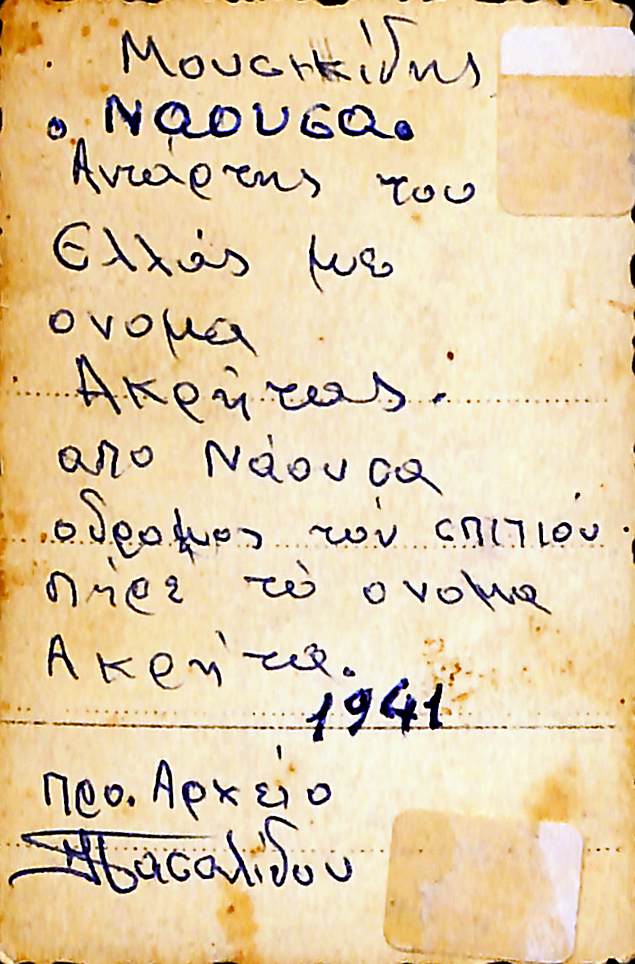 Μουσικίδης
. Ναουσα.
Αντάρτης του
Ελλάς με
ονομα
Ακρήτας.
απο Νάουσα
οδρομος τόυ σπιτιόυ.
πήρε τό ονομα
Ακρήτα.
1941
προ. Αρχείο
Πασαλίδου